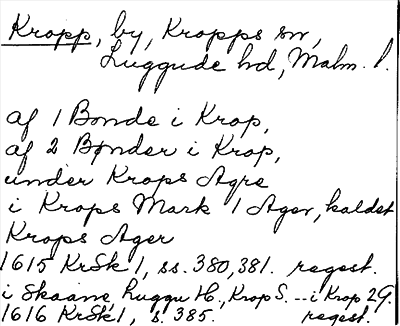 Kropp, by, Kropps sn,
Luggude hd, Malm. l.
af 1 Bonde i Krop,
af 2 Bønder i Krop,
under Krops Agre
i Krops Mark 1 Ager, kaldet
Krops Ager
1615 KrSk 1, ss. 380, 381. regest.
i Skaane, Luggu H., Krop S. -- i Krop 29.
1616 KrSk 1, s. 385. regest.